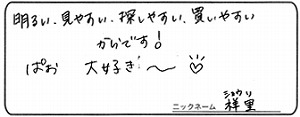 明るい、見やすい、探しやすい、買いやすい
からです!
ぱお 大好き!〜♡
ショウリ
ニックネーム 祥里